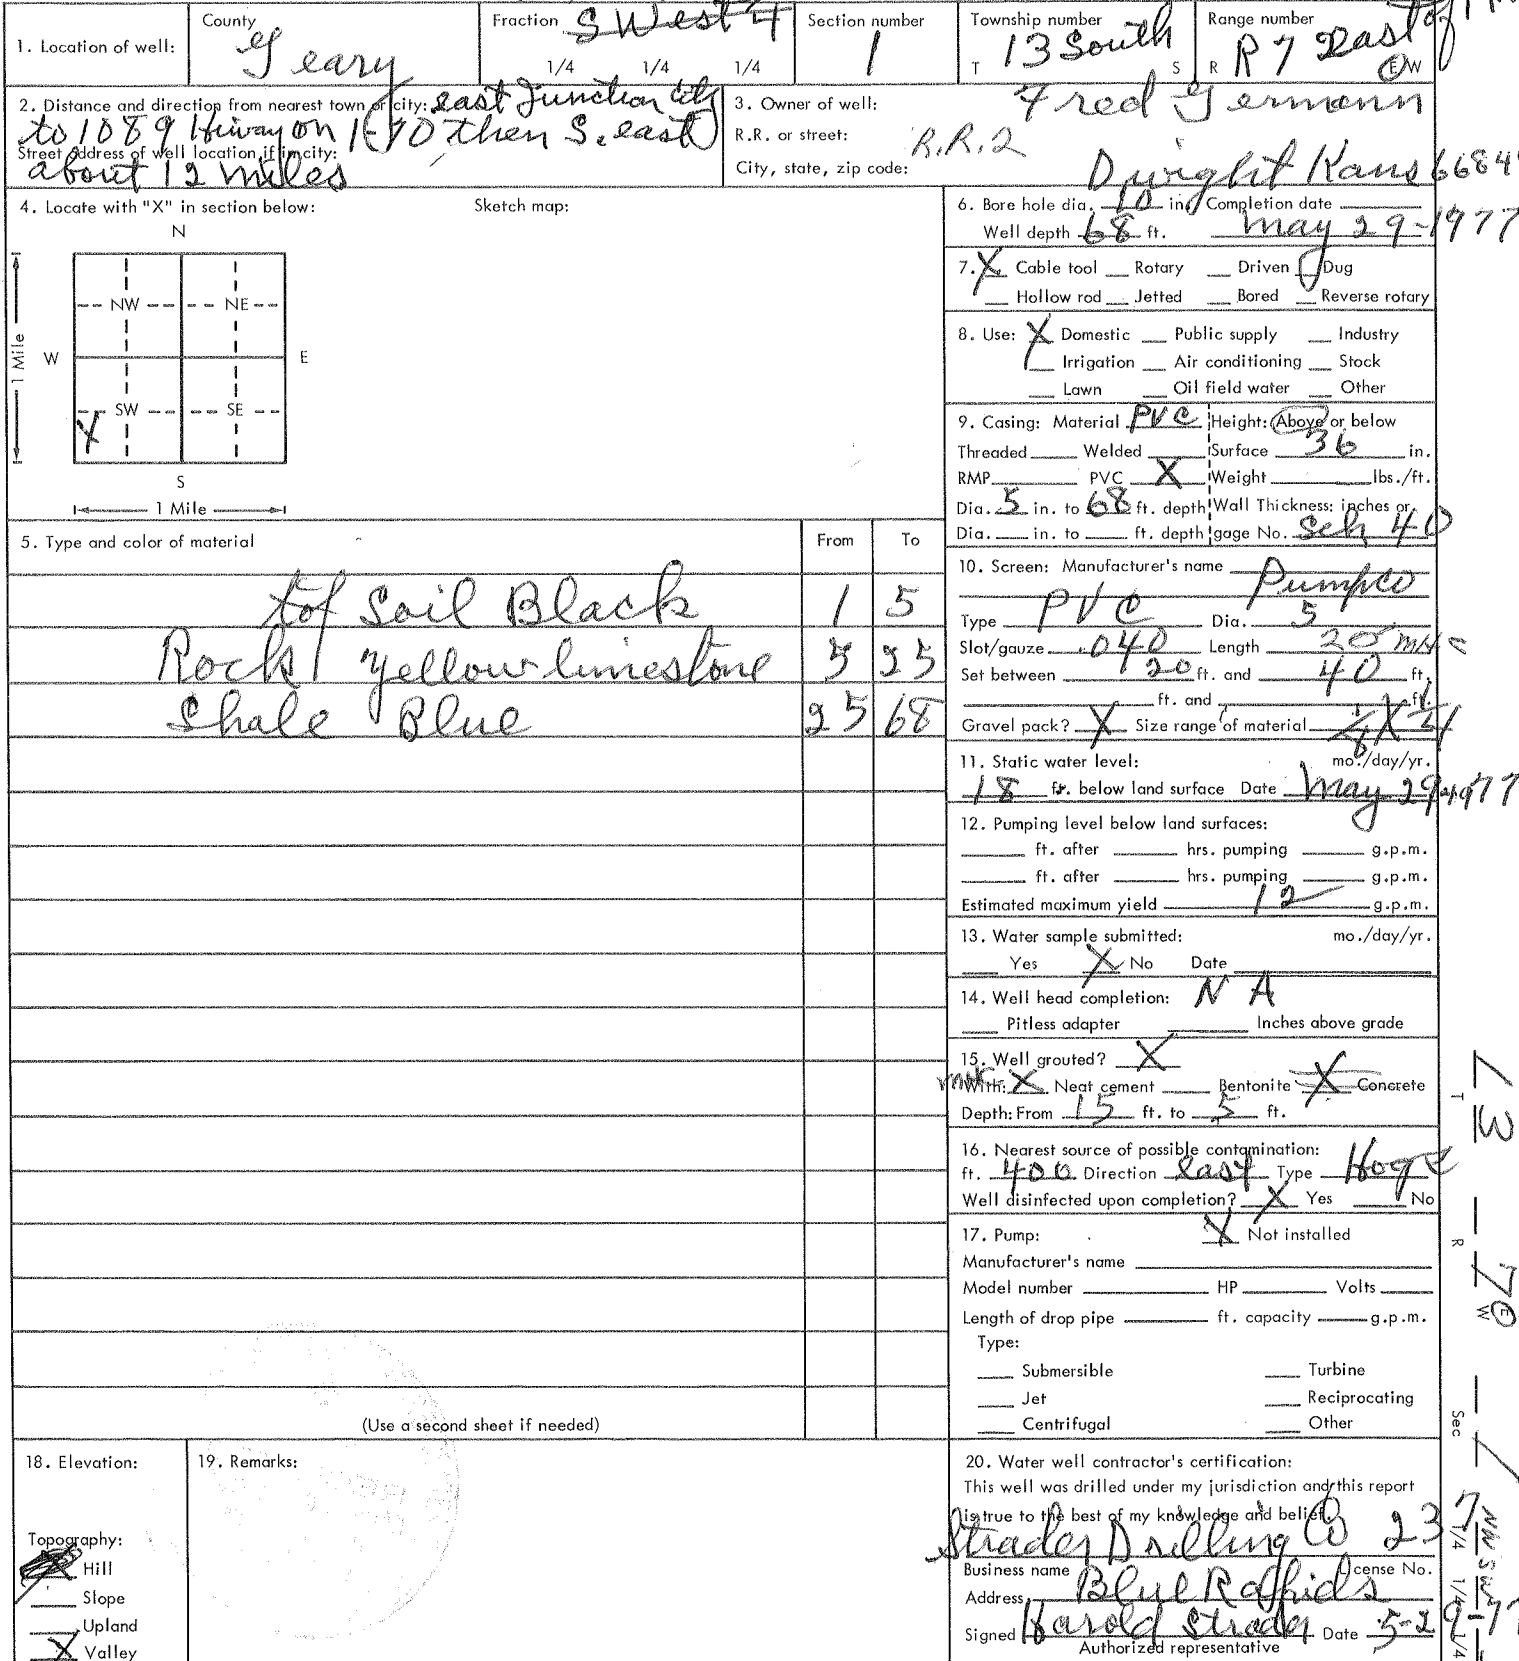 1. Location of well: County Geary Fraction S West 4 1/4 1/4 1/4 Section number 1 Township number T 13 South S Range number R R 7 East E W
2. Distance and direction from nearest town or city: east Junction City
to 1089 Hiway on I-70 then S. east
Street address of well location if in city:
about 12 miles
3. Owner of well: Fred Germann
R.R. or street: R.R.2
City, state, zip code: Dwight Kans 6684
4. Locate with "X" in section below: Sketch map:
N
NW NE
W E
1 Mile
SW SE
X
S
1 Mile
5. Type and color of material From To
tof Soil Black 1 5
Rock yellow limestone 5 25
Shale Blue 25 68
(Use a second sheet if needed)
6. Bore hole dia. 10 in. Completion date
Well depth 68 ft. May 29-1977
7. X Cable tool Rotary Driven Dug
Hollow rod Jetted Bored Reverse rotary
8. Use: X Domestic Public supply Industry
Irrigation Air conditioning Stock
Lawn Oil field water Other
9. Casing: Material PVC Height: Above or below
Threaded Welded Surface 36 in.
RMP PVC X Weight lbs./ft.
Dia. 5 in. to 68 ft. depth Wall Thickness: inches or
Dia. in. to ft. depth gage No. Sch 40
10. Screen: Manufacturer's name Pumpco
Type PVC Dia. 5
Slot/gauze .040 Length 20
Set between 20 ft. and 40 ft.
ft. and ft.
Gravel pack? X Size range of material
11. Static water level: mo./day/yr.
18 ft. below land surface Date May 29 1977
12. Pumping level below land surfaces:
ft. after hrs. pumping g.p.m.
ft. after hrs. pumping g.p.m.
Estimated maximum yield 12 g.p.m.
13. Water sample submitted: mo./day/yr.
Yes X No Date
14. Well head completion: N A
Pitless adapter Inches above grade
15. Well grouted? X
With: X Neat cement Bentonite X Concrete
Depth: From 15 ft. to 5 ft.
16. Nearest source of possible contamination:
ft. 400 Direction east Type Hogs
Well disinfected upon completion? X Yes No
17. Pump: X Not installed
Manufacturer's name
Model number HP Volts
Length of drop pipe ft. capacity g.p.m.
Type:
Submersible Turbine
Jet Reciprocating
Centrifugal Other
18. Elevation:
Topography:
Hill
Slope
Upland
X Valley
19. Remarks:
20. Water well contractor's certification:
This well was drilled under my jurisdiction and this report
is true to the best of my knowledge and belief.
Strader Drilling Co 237
Business name License No.
Address Blue Rapids
Signed Harold Strader Date 5-29-77
Authorized representative
T 13 R 7 E W Sec 1 1/4 1/4 1/4 NW SW